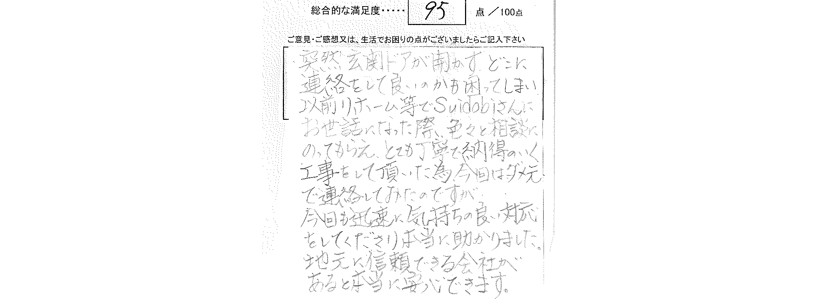 総合的な満足度・・・・・ 95 点／100点
ご意見・ご感想又は、生活でお困りの点がございましたらご記入下さい
突然玄関ドアが開かず どこに
連絡をして良いのかも困ってしまい
以前リホーム等でSuidobiさんに
お世話になった際、色々と相談に
のってもらえ、とても丁寧で納得のいく
工事をして頂いた為、今回はダメ元
で連絡してみたのですが
今回も迅速に気持ちの良い対応
をしてくださり本当に助かりました。
地元に信頼できる会社が
あると本当に安心できます。